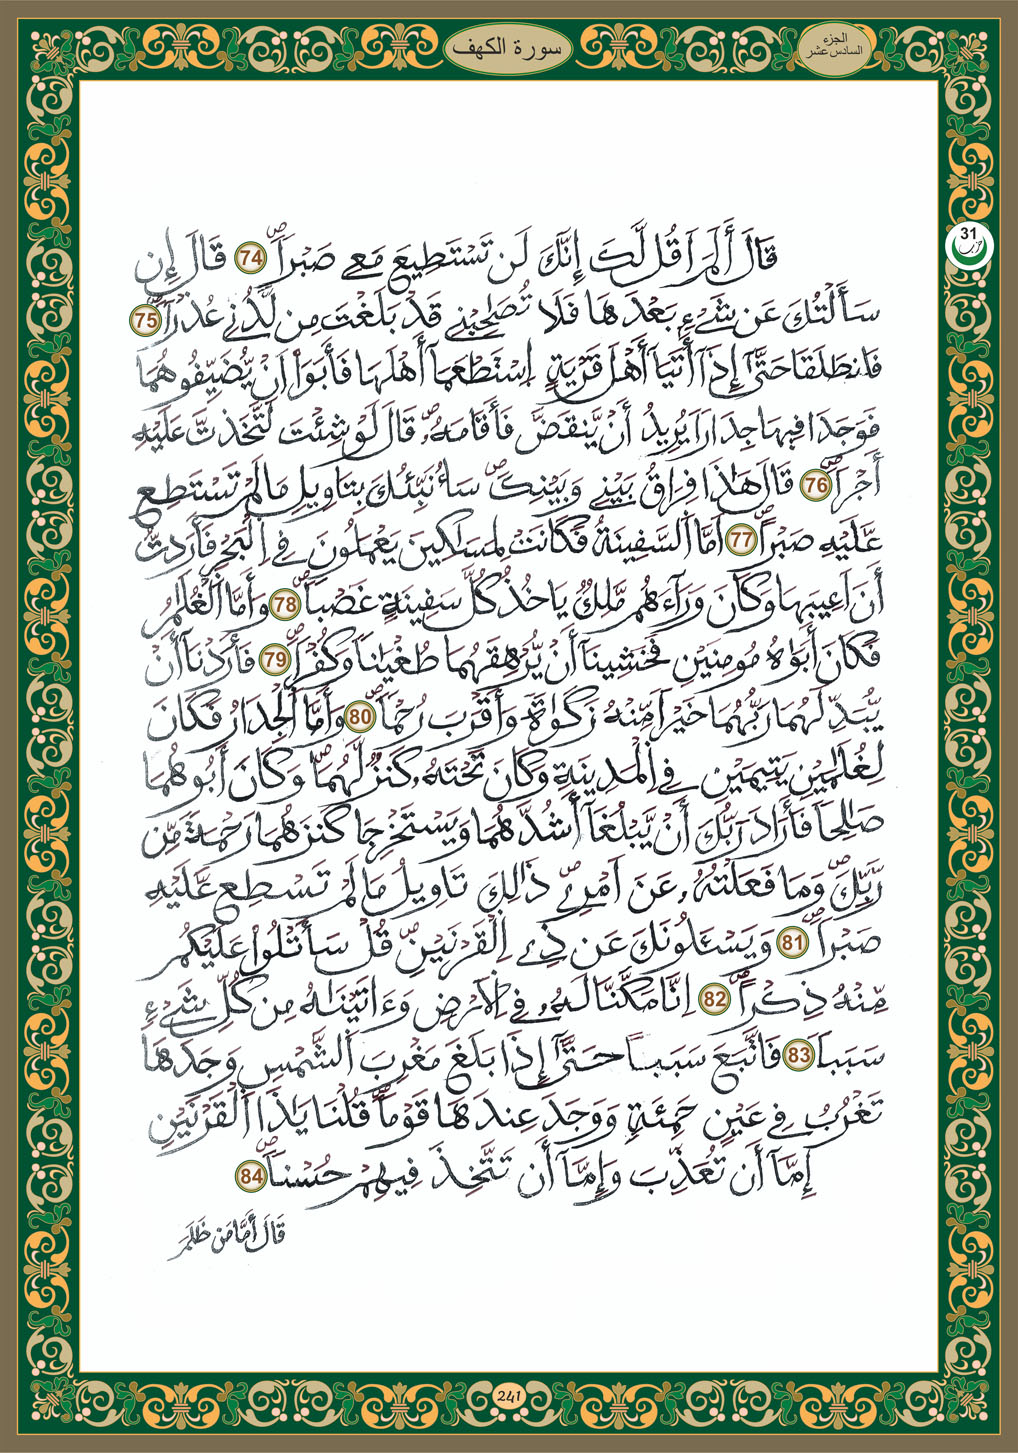 الجزء
السادس عشر
سورة الكهف
31
حزب
قَالَ أَلَمَ اَقُل لَّكَ إِنَّكَ لَن تَسْتَطِيعَ مَعِے صَبْراٗۖ 74 قَالَ إِن
سَأَلْتُكَ عَن شَےْءِۢ بَعْدَهَا فَلَا تُصَٰحِبْنِے قَدْ بَلَغْتَ مِن لَّدُنِے عُذْراٗۖ 75
فَانطَلَقَا حَتَّىٰٓ إِذَآ أَتَيَآ أَهْلَ قَرْيَةٍ اِسْتَطْعَمَآ أَهْلَهَا فَأَبَوَاْ اَنْ يُّضَيِّفُوهُمَا
فَوَجَدَا فِيهَا جِدَاراٗ يُرِيدُ أَنْ يَّنقَضَّ فَأَقَامَهُۥۖ قَالَ لَوْ شِئْتَ لَتَّخَذتَّ عَلَيْهِ
أَجْراٗۖ 76 قَالَ هَٰذَا فِرَاقُ بَيْنِے وَبَيْنِكَۖ سَأُنَبِّئُكَ بِتَاوِيلِ مَا لَمْ تَسْتَطِع
عَّلَيْهِ صَبْراٗۖ 77 اَمَّا اَ۬لسَّفِينَةُ فَكَانَتْ لِمَسَٰكِينَ يَعْمَلُونَ فِے اِ۬لْبَحْرِ فَأَرَدتُّ
أَنَ اَعِيبَهَا وَكَانَ وَرَآءَهُم مَّلِكٞ يَاخُذُ كُلَّ سَفِينَةٍ غَصْباٗۖ 78 وَأَمَّا اَ۬لْغُلَٰمُ
فَكَانَ أَبَوَٰهُ مُومِنَيْنِ فَخَشِينَآ أَنْ يُّرْهِقَهُمَا طُغْيَٰناٗ وَكُفْراٗۖ 79 فَأَرَدْنَآ أَنْ
يُّبَدِّلَهُمَا رَبُّهُمَا خَيْراٗ مِّنْهُ زَكَوٰةٗ وَأَقْرَبَ رُحْماٗۖ 80 وَأَمَّا اَ۬لْجِدَارُ فَكَانَ
لِغُلَٰمَيْنِ يَتِيمَيْنِ فِے اِ۬لْمَدِينَةِ وَكَانَ تَحْتَهُۥ كَنزٞ لَّهُمَاۖ وَكَانَ أَبُوهُمَا
صَٰلِحاٗ فَأَرَادَ رَبُّكَ أَنْ يَّبْلُغَآ أَشُدَّهُمَا وَيَسْتَخْرِجَا كَنزَهُمَا رَحْمَةٗ مِّن
رَّبِّكَۖ وَمَا فَعَلْتُهُۥ عَنَ اَمْرِےۖ ذَٰلِكَ تَاوِيلُ مَا لَمْ تَسْطِع عَّلَيْهِ
صَبْراٗۖ 81 وَيَسْـَٔلُونَكَ عَن ذِے اِ۬لْقَرْنَيْنِۖ قُلْ سَأَتْلُواْ عَلَيْكُم
مِّنْهُ ذِكْراًۖ 82 اِنَّا مَكَّنَّا لَهُۥ فِے اِ۬لَارْضِ وَءَاتَيْنَٰهُ مِن كُلِّ شَےْءٖ
سَبَباٗ 83 فَاتَّبَعَ سَبَباً حَتَّىٰٓ إِذَا بَلَغَ مَغْرِبَ اَ۬لشَّمْسِ وَجَدَهَا
تَغْرُبُ فِے عَيْنٍ حَمِئَةٖ وَوَجَدَ عِندَهَا قَوْماٗۖ قُلْنَا يَٰذَا اَ۬لْقَرْنَيْنِ
إِمَّآ أَن تُعَذِّبَ وَإِمَّآ أَن تَتَّخِذَ فِيهِمْ حُسْناٗۖ 84
قَالَ أَمَّا مَن ظَلَمَ
241